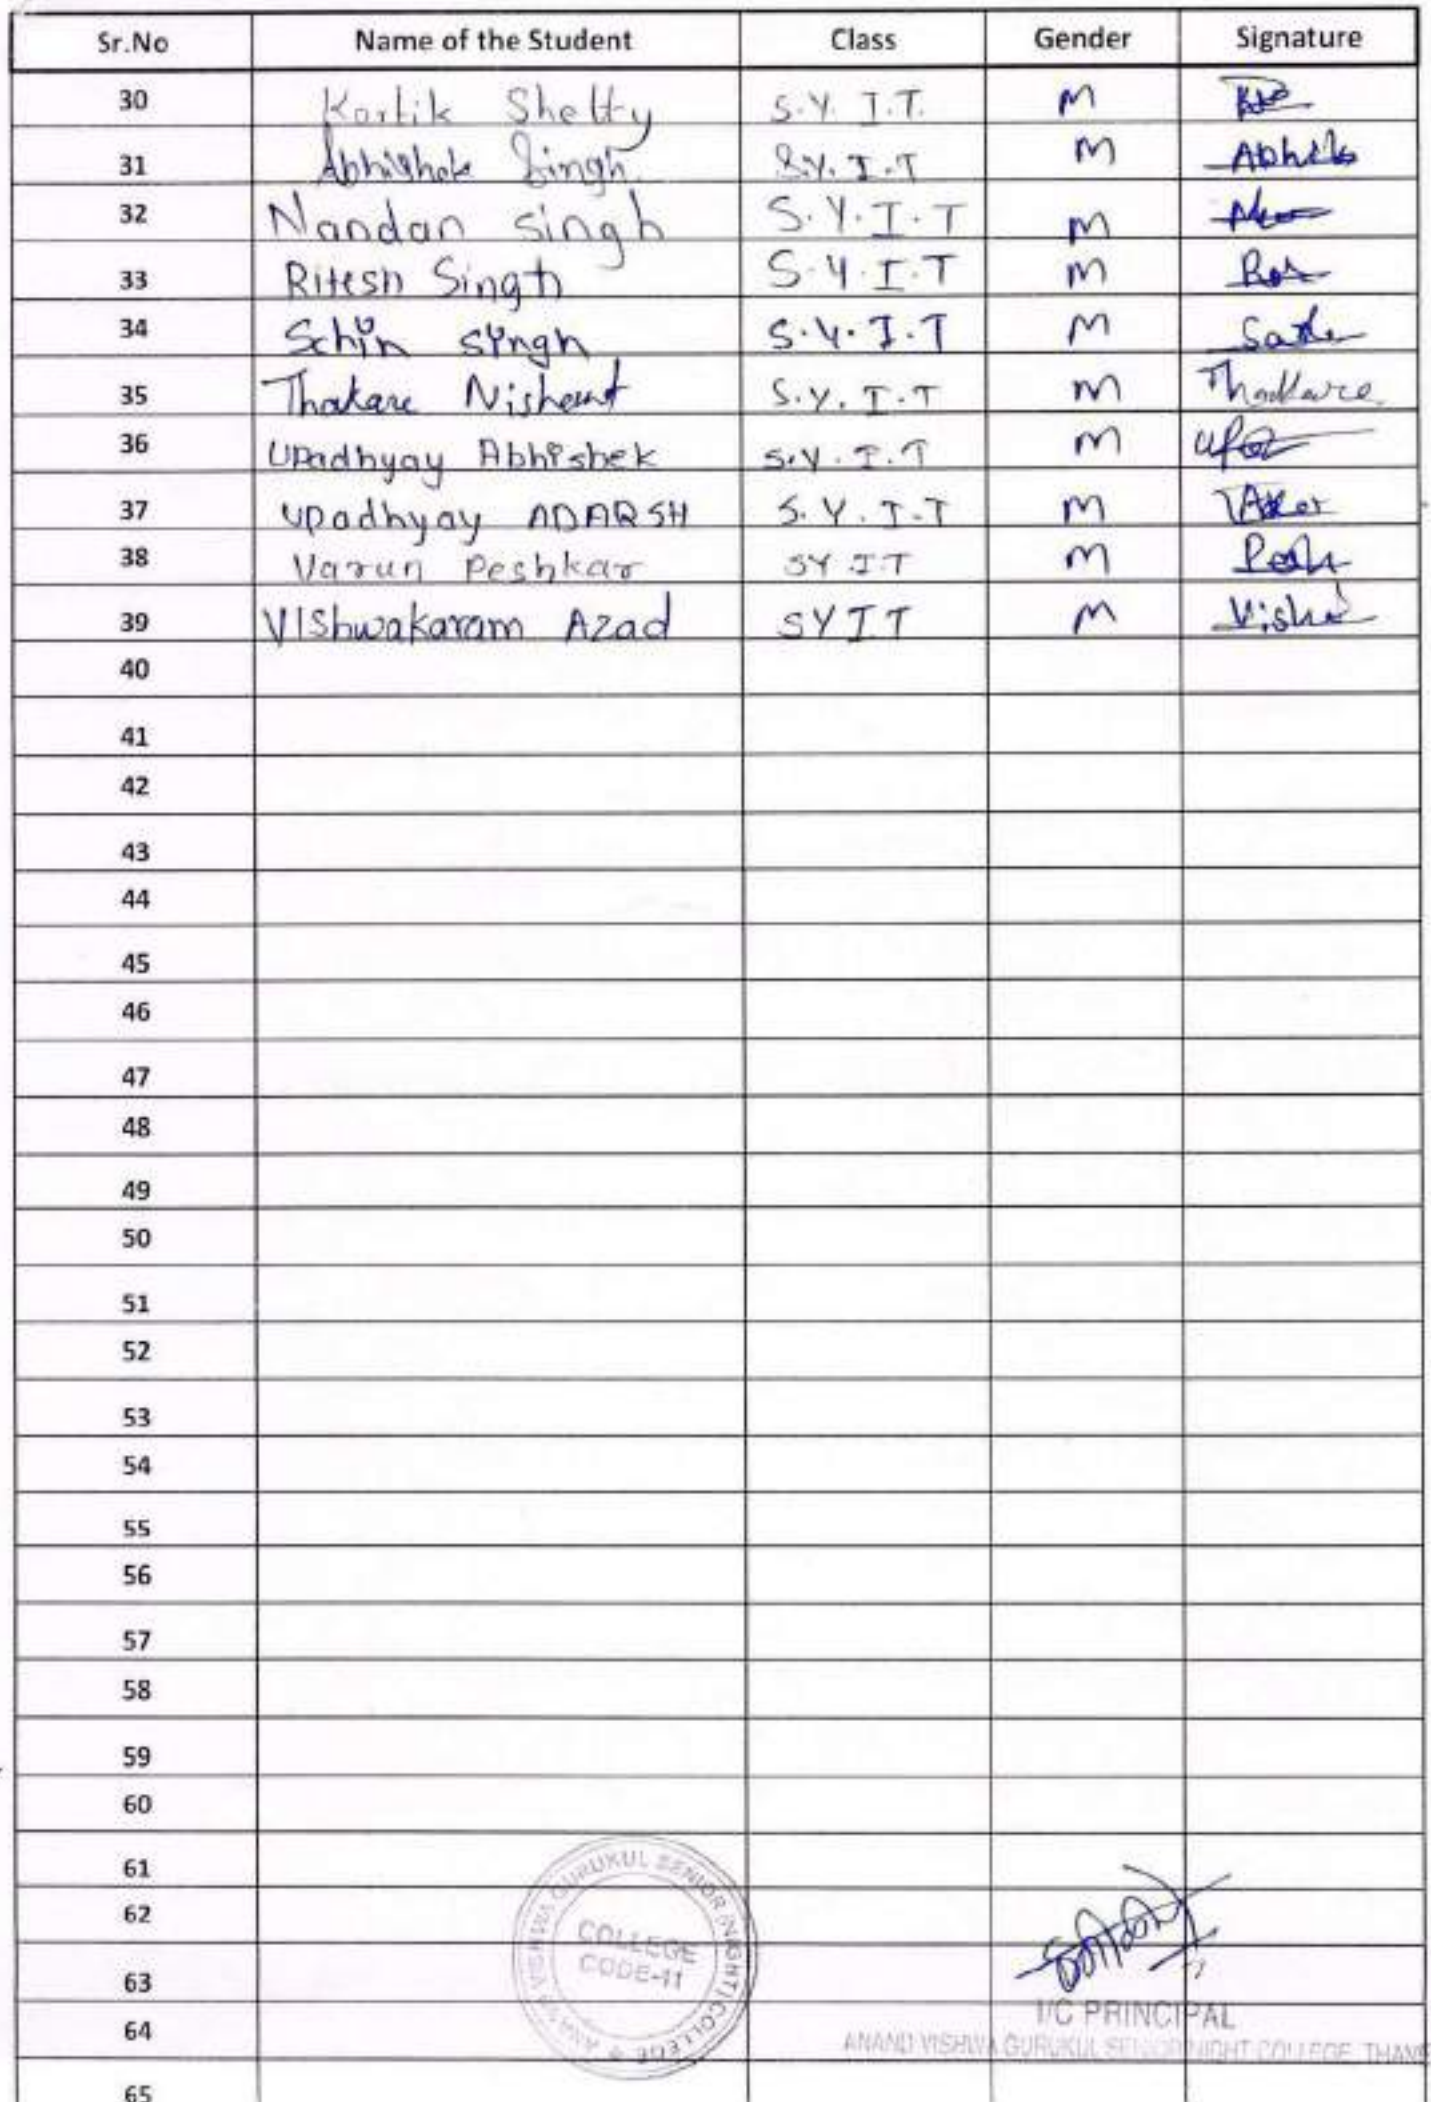 Sr.No Name of the Student Class Gender Signature
30 Kartik Shetty S.Y. I.T. M
31 Abhishek Singh S.Y. I.T M Abhi
32 Nandan Singh S.Y.I.T M
33 Ritesh Singh S.Y.I.T M
34 Schin Singh S.Y.I.T M
35 Thakare Nishant S.Y. I.T M Thakare
36 Upadhyay Abhishek S.Y.I.T M
37 Upadhyay ADARSH S.Y.I.T M
38 Varun Peshkar SY IT M
39 VIshwakaram Azad SYIT M
40
41
42
43
44
45
46
47
48
49
50
51
52
53
54
55
56
57
58
59
60
61
62
63
64
65
ANAND VISHWA GURUKUL SENIOR (NIGHT) COLLEGE
COLLEGE
CODE-11
I/C PRINCIPAL
ANAND VISHWA GURUKUL SENIOR NIGHT COLLEGE, THANE